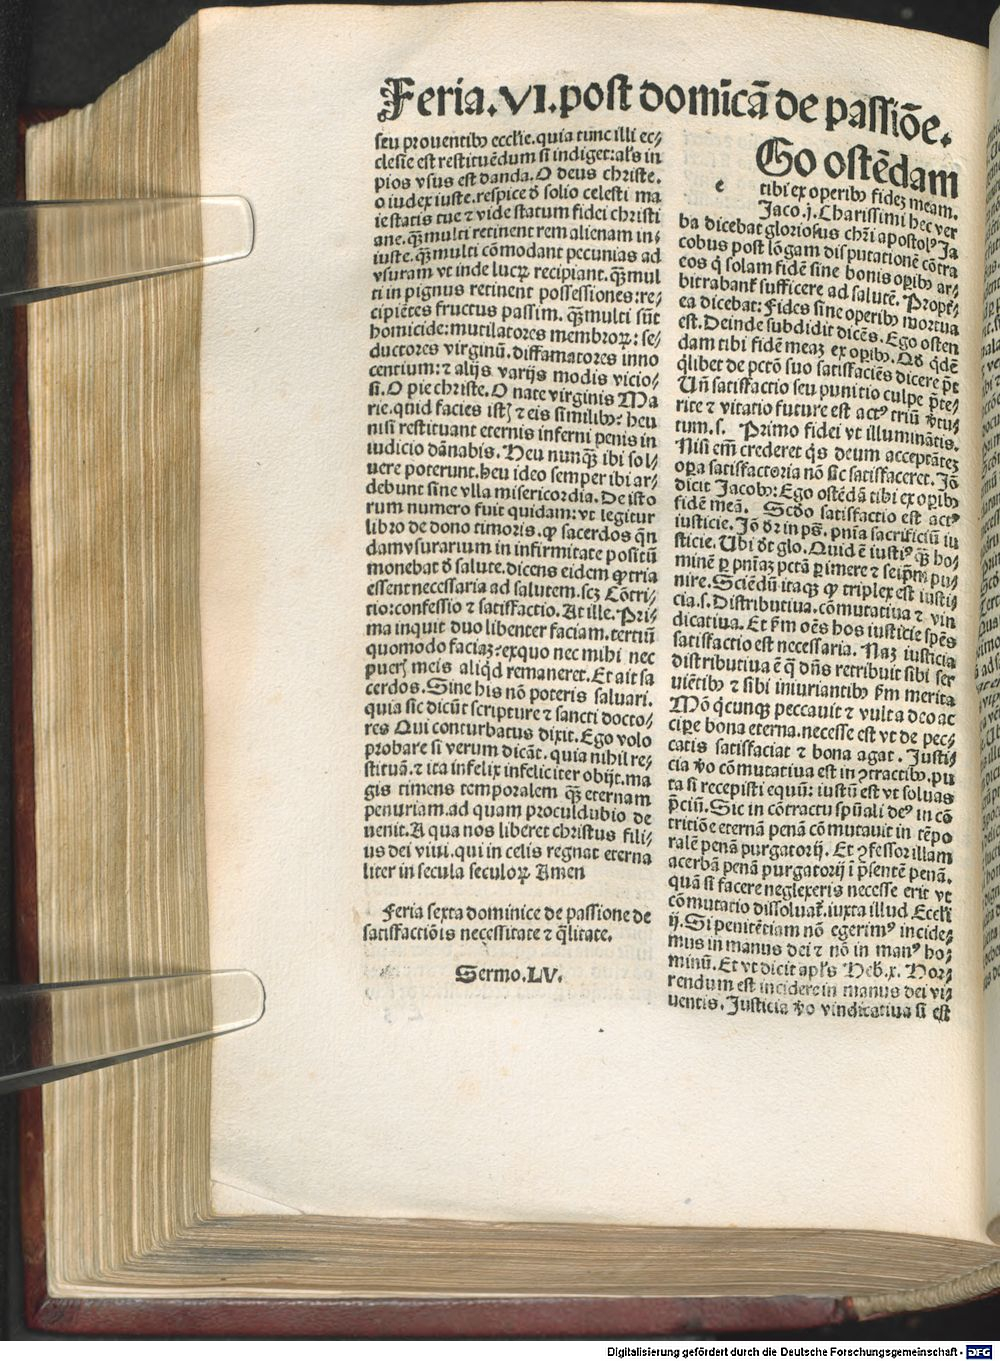 Feria.VI.post domĩcã de passiõe.
seu prouentibꝰ ecclie.quia tunc illi ec⸗
clesie est restituẽdum si indiget:als in
pios vsus est danda.O deus christe.
o iudex iuste.respice ď solio celesti ma
iestatis tue ⁊ vide statum fidei christi
ane.qꝫ multi retinent rem alienam in⸗
iuste.qꝫ multi cõmodant pecunias ad
vsuram vt inde lucrꝝ recipiant.qꝫ mul
ti in pignus retinent possessiones:re⸗
cipiẽtes fructus passim. qꝫ multi sũt
homicide:mutilatores membroꝝ: se⸗
ductores virginũ.diffamatores inno
centium:⁊ alijs varijs modis vicio⸗
si.O pie christe.O nate virginis Ma
rie.quid facies istꝭ ⁊ eis similibꝰ: heu
nisi restituant eternis inferni penis in
iudicio dãnabis. Heu nunqꝫ ibi sol⸗
uere poterunt.heu ideo semper ibi ar⸗
debunt sine vlla misericordia. De isto
rum numero fuit quidam: vt legitur
libro de dono timoris. ꝙ sacerdos qñ
dam vsurarium in infirmitate positũ
monebat ď salute. dicens eidem ꝙ tria
essent necessaria ad salutem.scꝫ Cõtri⸗
tio:confessio ⁊ satisfactio. At ille. Pri⸗
ma inquit duo libenter faciam.tertiũ
quomodo faciaꝫ:exquo nec mihi nec
puerꝭ meis aliqd remaneret. Et ait sa
cerdos. Sine his nõ poteris saluari.
quia sic dicũt scripture ⁊ sancti docto⸗
res Qui conturbatus dixit. Ego volo
probare si verum dicãt. quia nihil re⸗
stituã.⁊ ita infelix infeliciter obijt.ma
gis timens temporalem qꝫ eternam
penuriam.ad quam proculdubio de
uenit.A qua nos liberet christus fili⸗
us dei viui.qui in celis regnat eterna
liter in secula seculoꝝ Amen
Feria sexta dominice de passione de
satisfactiõis necessitate ⁊ q̃litate.
Sermo.LV.
e
Go ostẽdam
tibi ex operibꝰ fideꝫ meam.
Jaco.j. Charissimi hec ver
ba dicebat gloriosus chri apostolꝰ Ja
cobus post lõgam disputationẽ cõtra
eos q̃ solam fidẽ sine bonis oꝑibꝰ ar⸗
bitrabant᷑ sufficere ad salutẽ. Propt᷑⸗
ea dicebat: Fides sine operibꝰ mortua
est. Deinde subdidit dicẽs. Ego osten
dam tibi fidẽ meaꝫ ex oꝑibꝰ. Qď qdẽ
q̃libet de pctõ suo satisfaciẽs dicere põt
Uñ satisfactio seu punitio culpe p̃te⸗
rite ⁊ vitatio future est actꝰ triũ v̓tu⸗
tum.s. Primo fidei vt illuminãtis.
Nisi em̃ crederet q̃s deum acceptãteꝫ
oꝑa satisfactoria nõ sic satisfaceret. Jõ
dicit Jacobꝰ: Ego ostẽdã tibi ex oꝑibꝰ
fidẽ meã. Scďo satisfactio est actꝰ
iusticie. Jõ dr in ps̃. pnĩa sacrificiũ iu
sticie. Ubi ďt glo. Quid ẽ iustiꝰ qꝫ ho⸗
minẽ ꝑ pnĩaꝫ pctã ꝑimere ⁊ seip̃m pu⸗
nire. Sciẽdũ itaqꝫ ꝙ triplex est iusti⸗
cia.s. Distributiua.cõmutatiua ⁊ vin
dicatiua. Et s̃m oẽs hos iusticie sp̃es
satisfactio est necessaria. Naꝫ iusticia
distributiua ẽ q̃ dñs retribuit sibi ser
uiẽtibꝰ ⁊ sibi iniuriantibꝰ s̃m merita
Mõ q̃cunqꝫ peccauit ⁊ vult a deo ac
ciꝑe bona eterna.necesse est vt de pec⸗
catis satisfaciat ⁊ bona agat. Justi⸗
cia v̓o cõmutatiua est in ꝯtractibꝰ. pu
ta si recepisti equũ: iustũ est vt soluas
p̃ciũ. Sic in cõtractu sp̃uali deꝰ in cõ
tritiõe eternã penã cõmutauit in tẽpo
ralẽ penã purgatorij. Et ꝯfessor illam
acerbã penã purgatorij i p̃sentẽ penã.
quã si facere neglexeris necesse erit vt
cõmutatio dissoluat᷑.iuxta illud Eccli
ij. Si penitẽtiam nõ egerimꝰ incide⸗
mus in manus dei ⁊ nõ in manꝰ ho⸗
minũ. Et vt dicit apls Heb.x. Hor⸗
rendum est incidere in manus dei vi⸗
uentis. Justicia v̓o vindicatiua si est
Digitalisierung gefördert durch die Deutsche Forschungsgemeinschaft - DFG